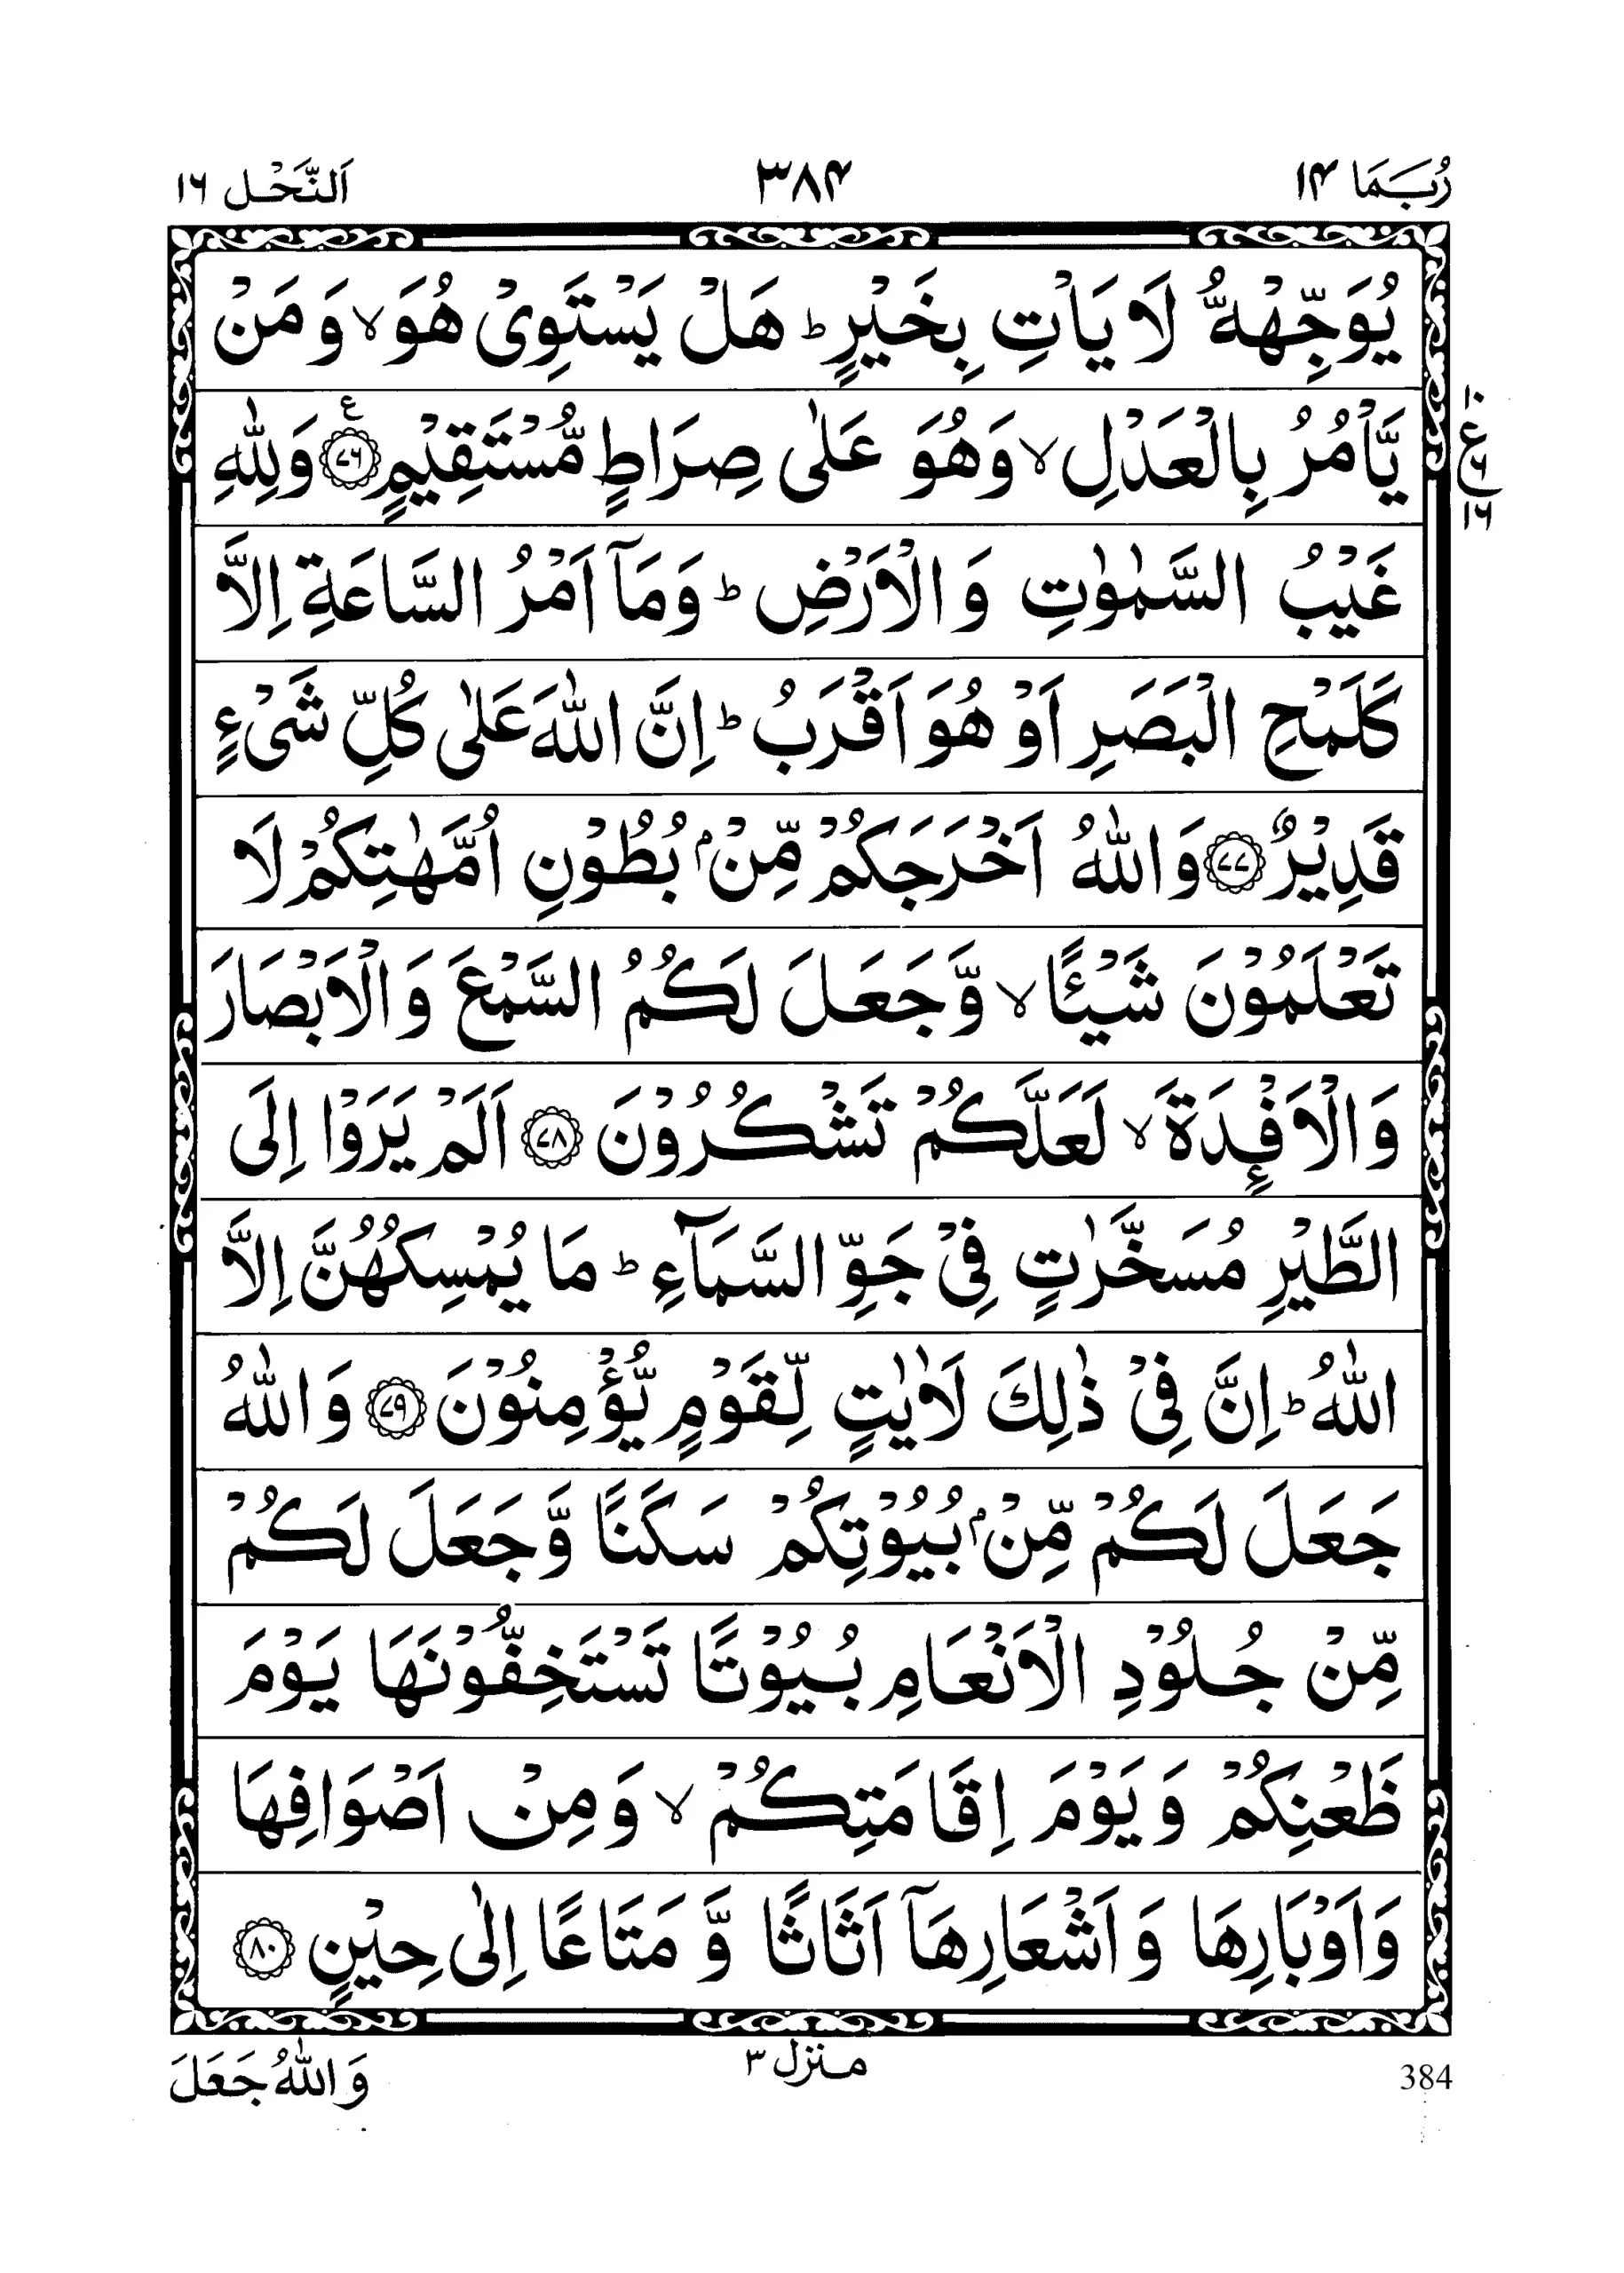 رُبَـمَا ١٤ ٣٨٤ اَلنَّحْـل ١٦
يُوَجِّهْهُّ لَا يَاْتِ بِخَيْرٍ ؕ هَلْ يَسْتَوِیْ هُوَ ۙ وَ مَنْ
يَّاْمُرُ بِالْعَدْلِ ۙ وَهُوَ عَلٰی صِرَاطٍ مُّسْتَقِيْمٍ ࣖ ﴿۷۶﴾ وَلِلّٰهِ
غَيْبُ السَّمٰوٰتِ وَ الْاَرْضِ ؕ وَمَاۤ اَمْرُ السَّاعَةِ اِلَّا
كَلَمْحِ الْبَصَرِ اَوْ هُوَ اَقْرَبُ ؕ اِنَّ اللّٰهَ عَلٰی كُلِّ شَیْءٍ
قَدِيْرٌ ﴿۷۷﴾ وَ اللّٰهُ اَخْرَجَكُمْ مِّنْۢ بُطُوْنِ اُمَّهٰتِكُمْ لَا
تَعْلَمُوْنَ شَيْئًا ۙ وَّجَعَلَ لَكُمُ السَّمْعَ وَ الْاَبْصَارَ
وَ الْاَفْـِٕدَةَ ۙ لَعَلَّكُمْ تَشْكُرُوْنَ ﴿۷۸﴾ اَلَمْ يَرَوْا اِلَی
الطَّيْرِ مُسَخَّرٰتٍ فِیْ جَوِّ السَّمَآءِ ؕ مَا يُمْسِكُهُنَّ اِلَّا
اللّٰهُ ؕ اِنَّ فِیْ ذٰلِكَ لَاٰيٰتٍ لِّقَوْمٍ يُّؤْمِنُوْنَ ﴿۷۹﴾ وَ اللّٰهُ
جَعَلَ لَكُمْ مِّنْۢ بُيُوْتِكُمْ سَكَنًا وَّجَعَلَ لَكُمْ
مِّنْ جُلُوْدِ الْاَنْعَامِ بُيُوْتًا تَسْتَخِفُّوْنَهَا يَوْمَ
ظَعْنِكُمْ وَ يَوْمَ اِقَامَتِكُمْ ۙ وَ مِنْ اَصْوَافِهَا
وَ اَوْبَارِهَا وَ اَشْعَارِهَاۤ اَثَاثًا وَّ مَتَاعًا اِلٰی حِيْنٍ ﴿۸۰﴾
١٠
ع
٦
١٦
384 مـنزل ٣ وَ اللّٰهُ جَعَلَ